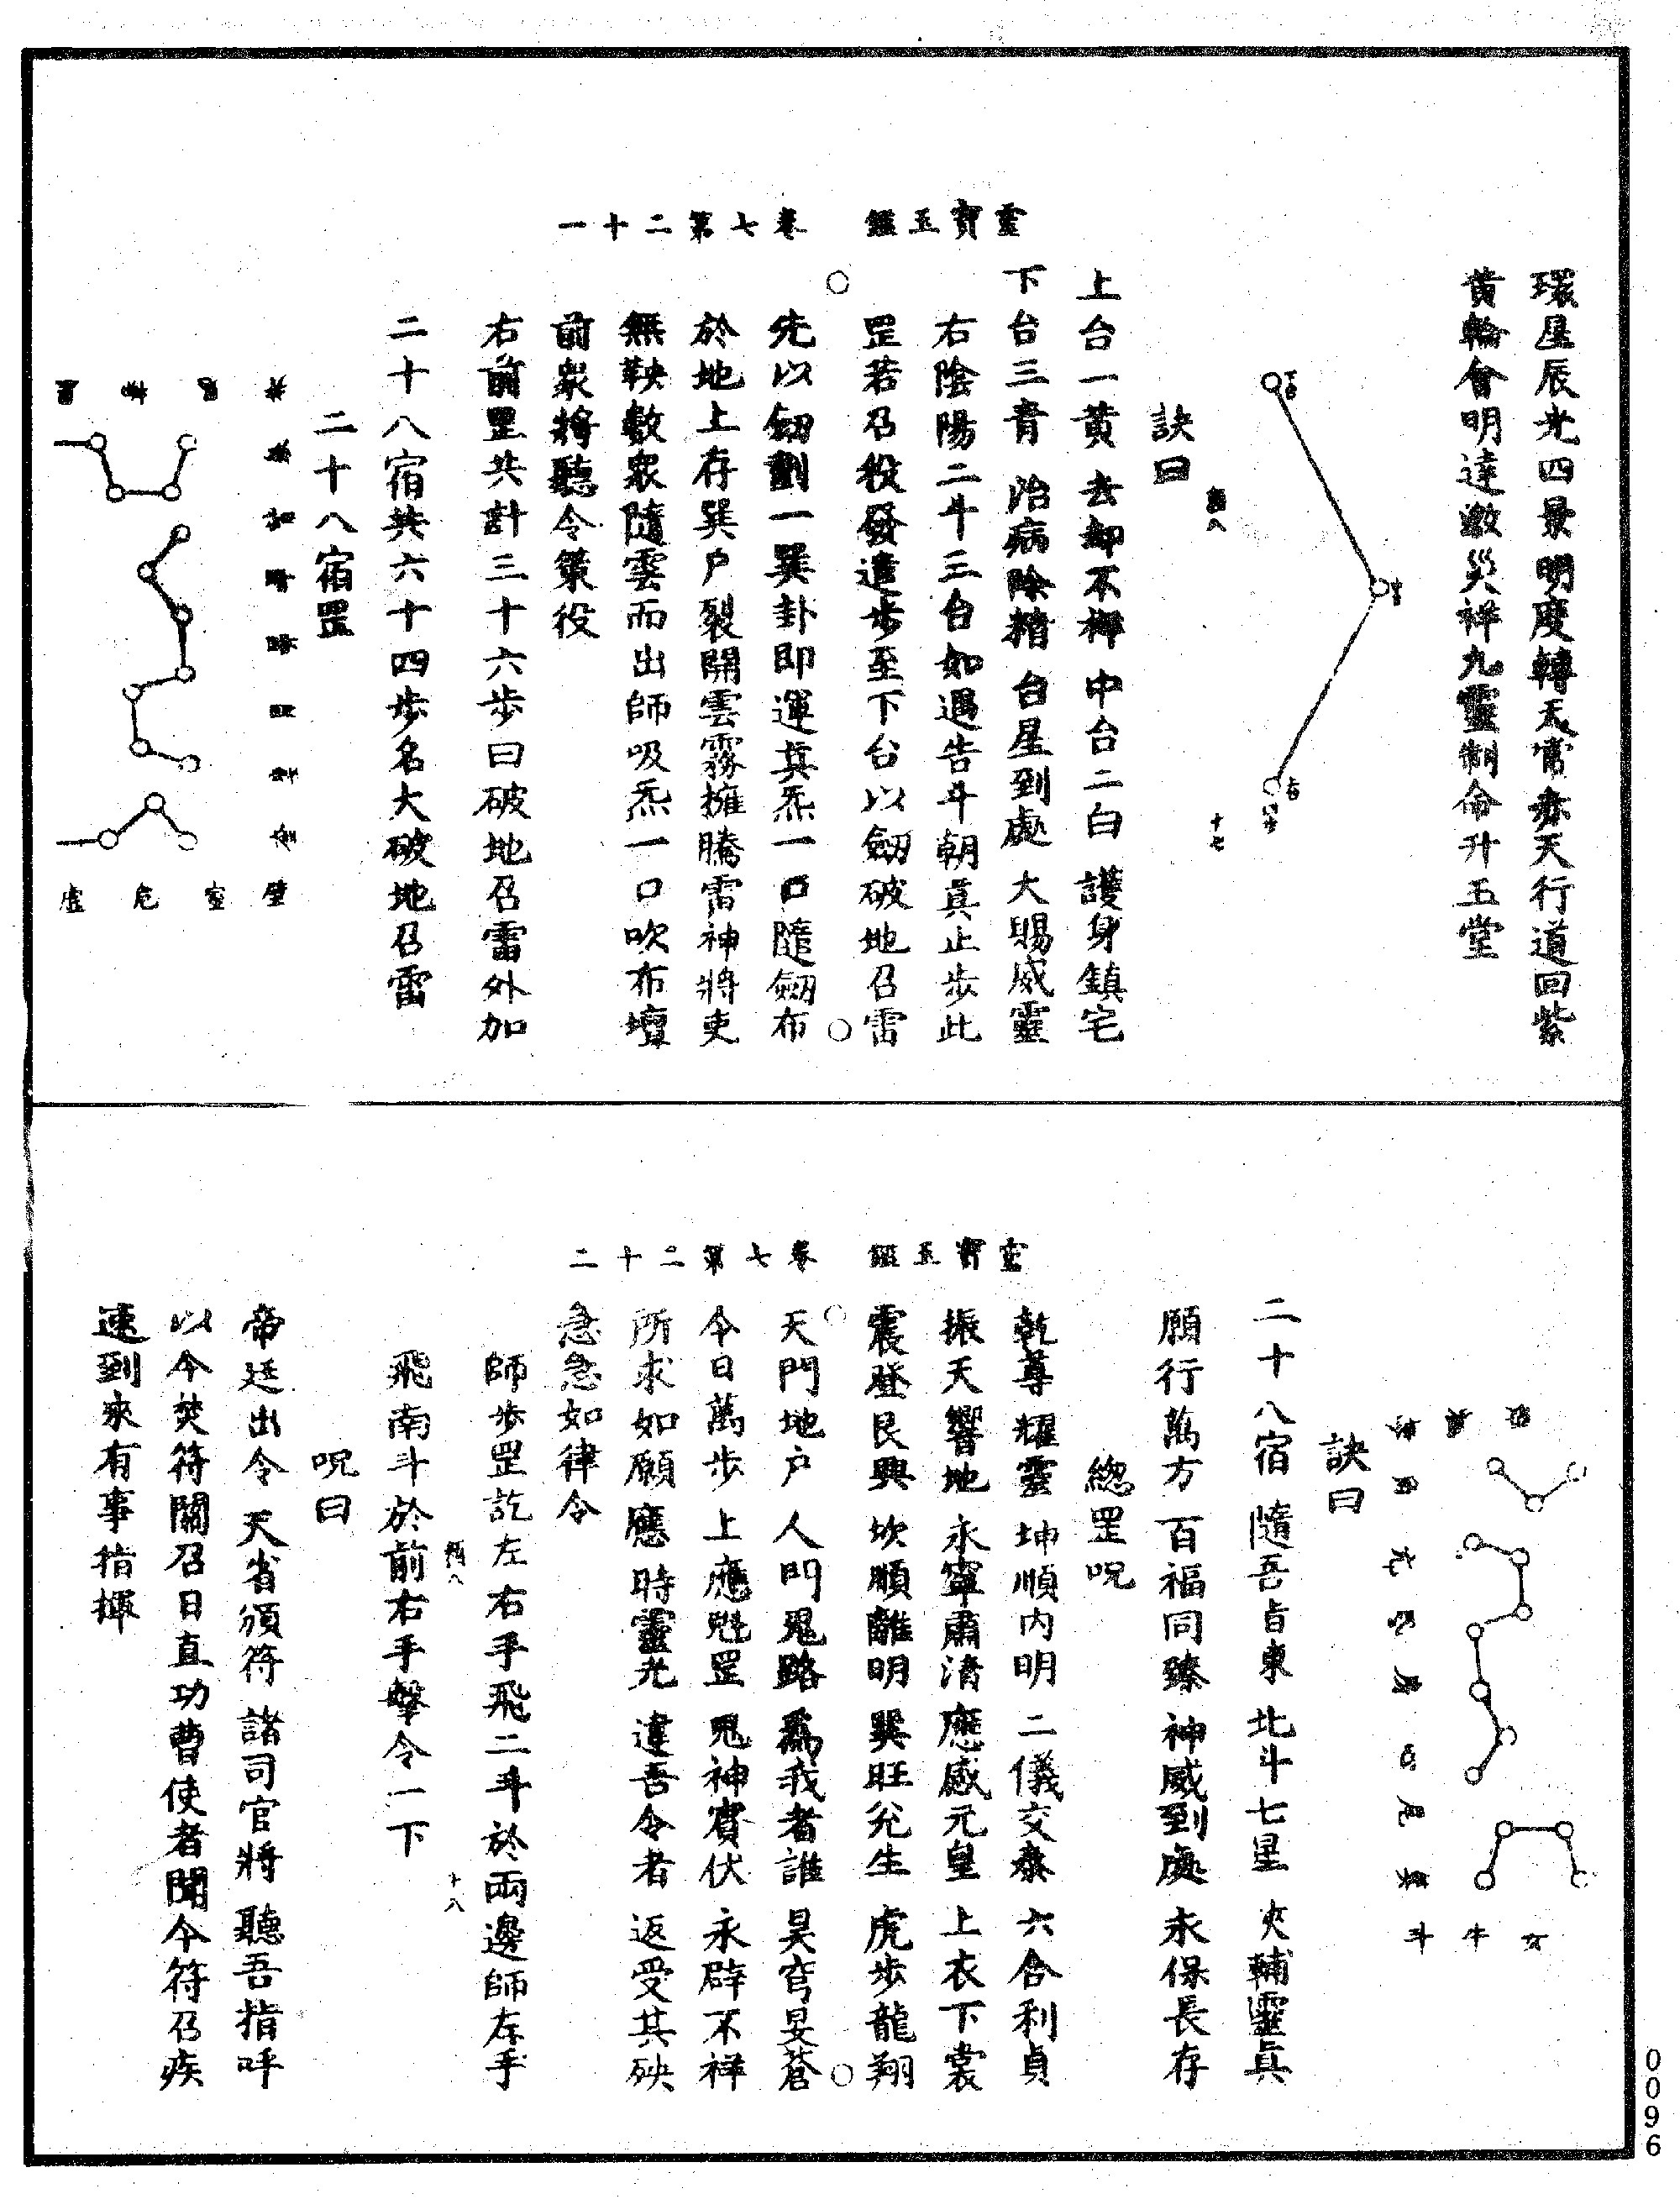 環星辰光四景明度轉天常赤天行道回紫
黃輪會明達激災祥九靈制命升玉堂
下台
中台
上台
訣曰
十七
上台一黃 去却不樿 中台二白 護身鎮宅
下台三青 治病除精 台星到處 大賜威靈
右陰陽二斗三台如遇告斗朝真止步此
罡若召役發遣步至下台以劒破地召雷
靈寶玉鑑 卷七第二十一
先以劒劃一巽卦即運真炁一口隨劒布
於地上存巽户裂開雲霧擁騰雷神將吏
無鞅數衆隨雲而出師吸炁一口吹布壇
前衆將聽令策役
右前罡共計三十六步曰破地召雷外加
二十八宿共六十四步名大破地召雷
二十八宿罡
虛 危 室 壁
斗 牛 女
訣曰
二十八宿 隨吾旨東 北斗七星 夾輔靈真
願行萬方 百福同臻 神威到處 永保長存
總罡呪
乾尊耀靈 坤順内明 二儀交泰 六合利貞
振天響地 永寧肅清 應感元皇 上衣下裳
震登艮興 坎順離明 巽旺兌生 虎步龍翔
靈寶玉鑑 卷七第二十二
天門地户 人門鬼路 爲我者誰 昊穹旻蒼
今日萬步 上應魁罡 鬼神賓伏 永辟不祥
所求如願 應時靈光 違吾令者 返受其殃
急急如律令
師步罡訖左右手飛二斗於兩邊師左手
十八
飛南斗於前右手擊令一下
呪曰
帝廷出令 天省頒符 諸司官將 聽吾指呼
以今焚符關召日直功曹使者聞今符召疾
速到來有事指揮
0096